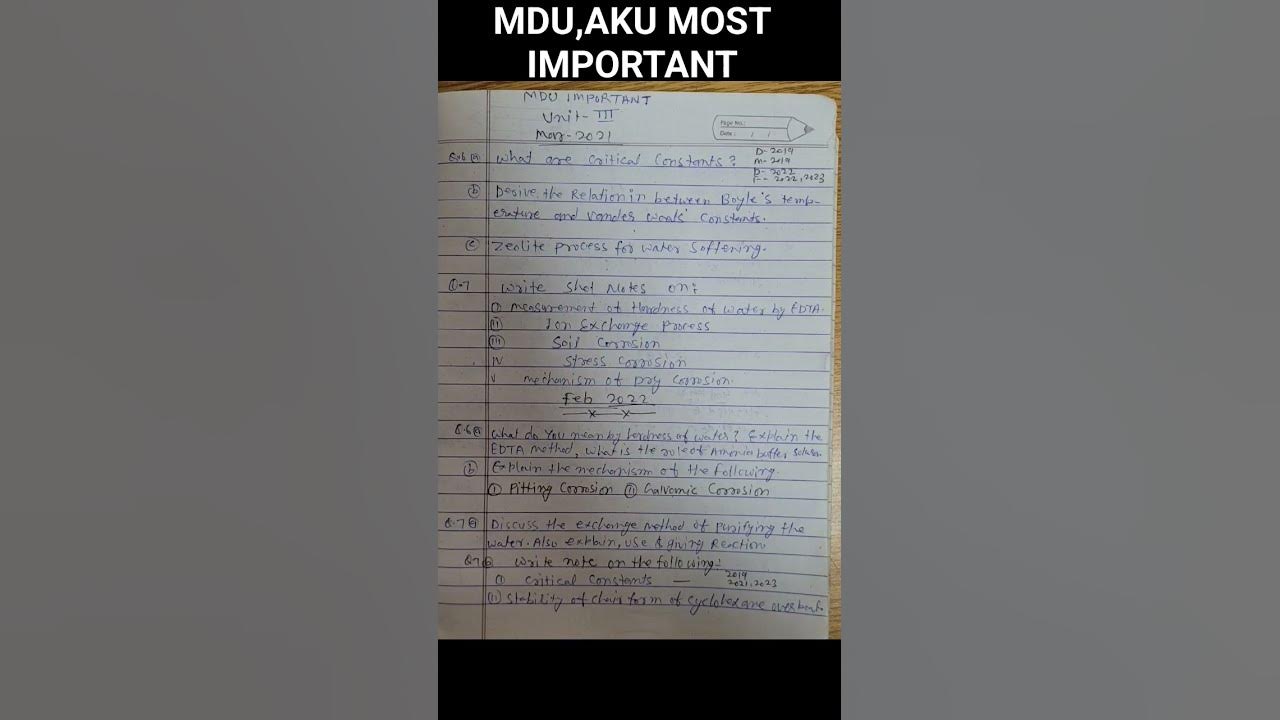 MDU,AKU MOST
IMPORTANT
MDU IMPORTANT
Unit-III
May-2021
Page No.:
Date: / /
Q.6 a What are Critical Constants?
D-2019
M-2019
D-2022
F-- 2022,2023
b Desive the Relation in between Boyle's temp-
erature and vander waals' Constants.
c Zeolite process for water Softering.
Q.7 Write Shot Notes on:
i measurement of Hardness of water by EDTA.
ii Ion Exchange Process
iii Soil Corrosion
IV Stress Corrosion
V mechanism of Dry Corrosion.
Feb 2022
Q.6 a What do You mean by hardness of water? Explain the
EDTA method, what is the role of Ammonia buffer
b Explain the mechanism of the following.
i Pitting Corrosion ii Galvamic Corrosion
Q.7 a Discuss the exchange method of purifying the
water. Also explain, use & giving Reaction
Q7 Write note on the following:-
i Critical Constants —
2019
2021,2023
ii Stability of chair form of Cyclohexane over boat